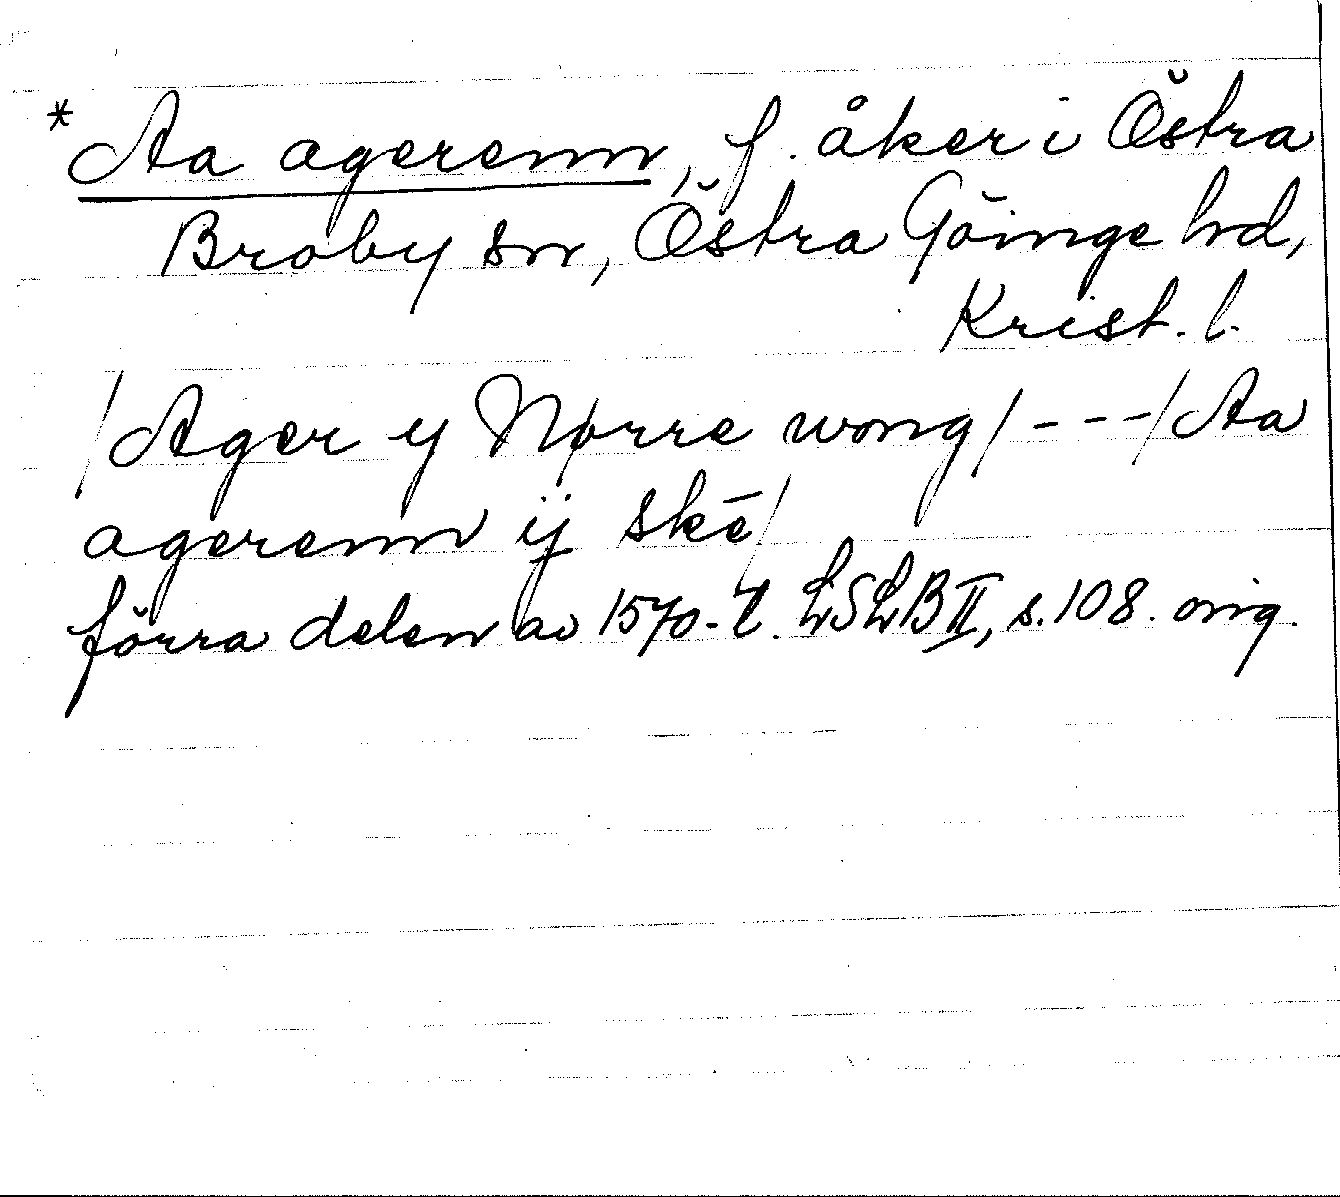 * Aa agerenn, f. åker i Östra
Broby sn, Östra Göinge hd,
Krist. l.
/Ager y Nørre wong/ - - -/Aa
agerenn ij skē/
förra delen av 1570-t. LSLB II, s. 108. orig.